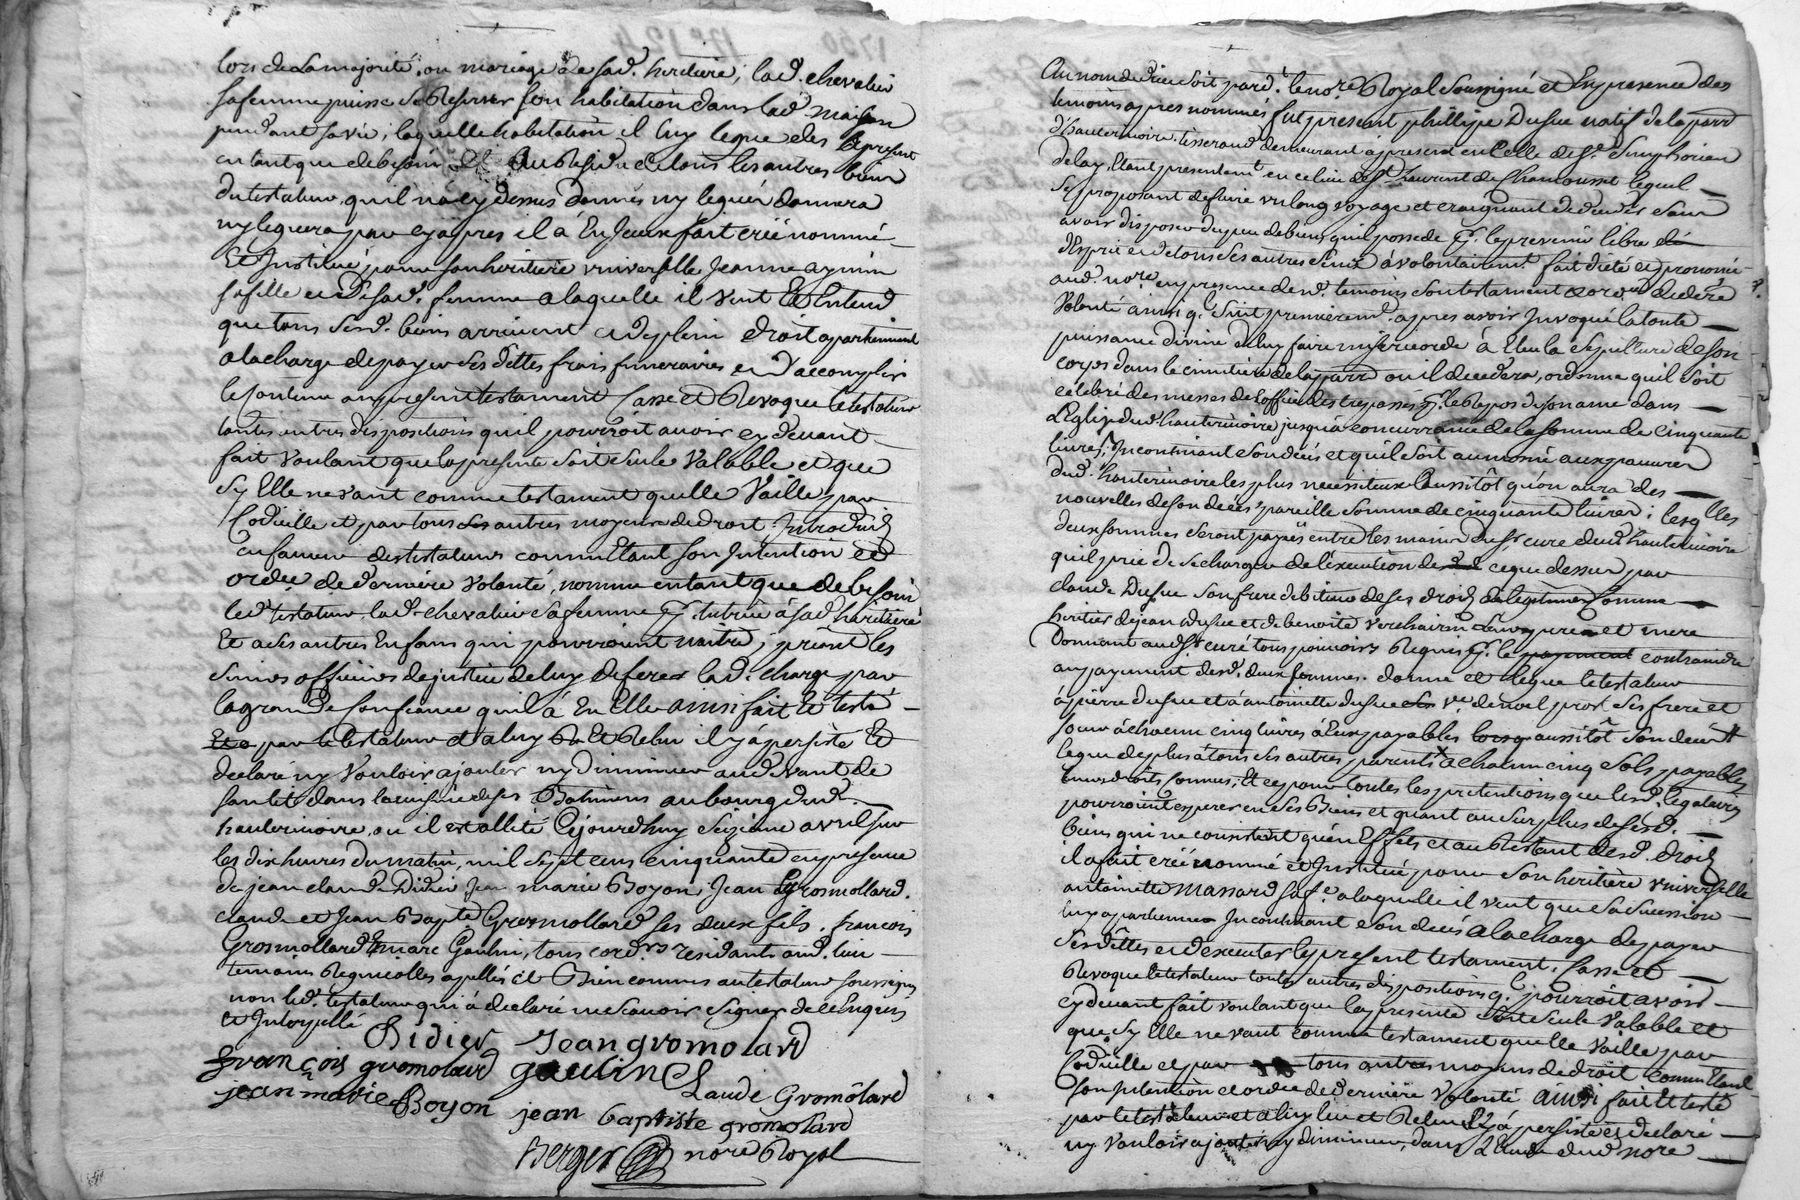 lors de la majorité, ou mariage de sad. heritiere, lad. chevalier
sa femme puisse se Reserver son habitation dans lad. maison
pendant sa vie, laquelle habitation il luy legue dès apresent
en tant que de besoin, Et Au Residu de tous les autres biens
du testateur, qu'il n'a cy dessus donnés ny legués donnera
ny leguera par cy après il a En Jceux fait créé nommé
Et Institué pour son heritiere universelle Jeanne
sa fille et de sad. femme a laquelle il veut Et Entend
que tous sesd. biens arrivent de plein droit apartiennent
a la charge de payer ses dettes frais funeraires et d'accomplir
le contenu au present testament Casse Et Revoque le testateur
toutes autres dispositions qu'il pourroit avoir cy devant
fait voulant que la presente soit seule valable et que
sy Elle ne vaut comme testament quelle Vaille par
Codicille et par tous autres moyens de droit Introduits
en faveur des testateurs comm' Etant son Intention et
ordre de derniere volonté, nomme entant que de besoin
led. testateur lad. chevalier sa femme pr. tutrice à sad. heritiere
Et a ses autres Enfans qui pourroient naitre, priant les
sieurs officiers de justice de luy deferer lad. charge par
la grande Confiance qu'il à En Elle ainsi fait Et testé
par le testateur et a luy lu Et Relu il y a persisté Et
declaré ny Vouloir ajouter ny diminuer aud. devant de
son lit dans la cuisine de ses Batimens au bourg dud.
hauterivoire, ou il est allité Cejourdhuy Seizieme avril sur
les dix heures du matin, mil sept cens cinquante en presence
de jean claude Didier Jean marie Boyon, Jean Grosmollard,
claude et Jean Bapte Grosmollard ses deux fils, francois
Grosmollard Et marc Gaulin, tous cord.rs residants aud. lieu
temoins Regnicolles apellés et Bien connus au testateur soussignés
non led. testateur qui a declaré ne scavoir signer de ce Enquis
et Interpellé
Didier Jean gromolard
francois gromolard gaulin Claude Gromolard
jean marie Boyon jean baptiste gromolard
Berger nore Royal
Au nom de dieu soit pard.t le nore Royal Soussigné et En presence des
temoins apres nommés fut present phillipe Dusuc natif de la parr
d'hauterivoire tisserand demeurant apresent en celle de St. Simphorien
de lay, Etant presentemt. en celieu de St. Laurent de Chamousset lequel
se proposant de faire un long voyage et craignant de deceder sans
avoir disposer du peu de biens qu'il possede pr. le prevenir libre
d'Esprit et de tous ses autres sens à volontairemt. fait dicté et prononcé
aud. nore. en presence desd. temoins son testament et ordre de dere
Volonté ainsi q. Suit premierem. apres avoir Invoqué la toute
puissance divine de luy faire misericorde à Elu la sepulture de son
corps dans le cimetiere de la parr ou il decedera, ordonne qu'il soit
célébré des messes de L'office des trepassés pr. le Repos de son ame dans
L'Eglise dud. hauterivoire jusqu'à concurrance de la somme de cinquante
livres, Incontinant son décès et qu'il soit aumoné aux pauvres
dud. hauterivoire les plus necessiteux aussitôt qu'on aura des
nouvelles de son deces pareille somme de cinquante livres; lesqlles
deux sommes seront payées entre les mains du Sr. curé dud. hauterivoire
qu'il prie de se charger de l'éxecution de ce que dessus par
claude Dusuc Son frere debiteur de ses droits de legitimes Comme
heritier de jean Dusuc et de benoite Verchairin leurs pere et mere
Donnant aud. Sr. curé tous pouvoirs Requis pr. le payement contraindre
au payement desd. deux sommes. donne et legue le testateur
à pierre Dusuc et à antoinette Dusuc ve. de noel ses frere et
soeur à chacun cinq livres à Eux payables aussitôt Son décès
legue de plus à tous ses autres parents à chacun cinq sols payables
Et ce pour toutes les pretentions que lesd. legataires
pourroient esperer en ses Biens et quant au surplus de sesd.
biens qui ne consistent qu'en Effets et au Restant desd. droits
il a fait créé nommé et Institué pour son heritiere universelle
antoinette Massard sa fe. a laquelle il veut que sa succession
luy apartienne Incontinant son decès à la charge de payer
ses dettes et d'executer le present testament. Casse et
Revoque le testateur toutes autres dispositions q. pourroit avoir
cy devant fait voulant que la presente soit seule valable et
que sy Elle ne vaut comme testament quelle vaille par
Codicille et par tous autres moyens de droit comm' Etant
son Intention et ordre de derniere Volonté ainsi fait Et testé
par le testateur et a luy leu et Releu Il y a persisté et declaré
ny vouloir ajouter ny diminuer, dans L'Etude dud. nore